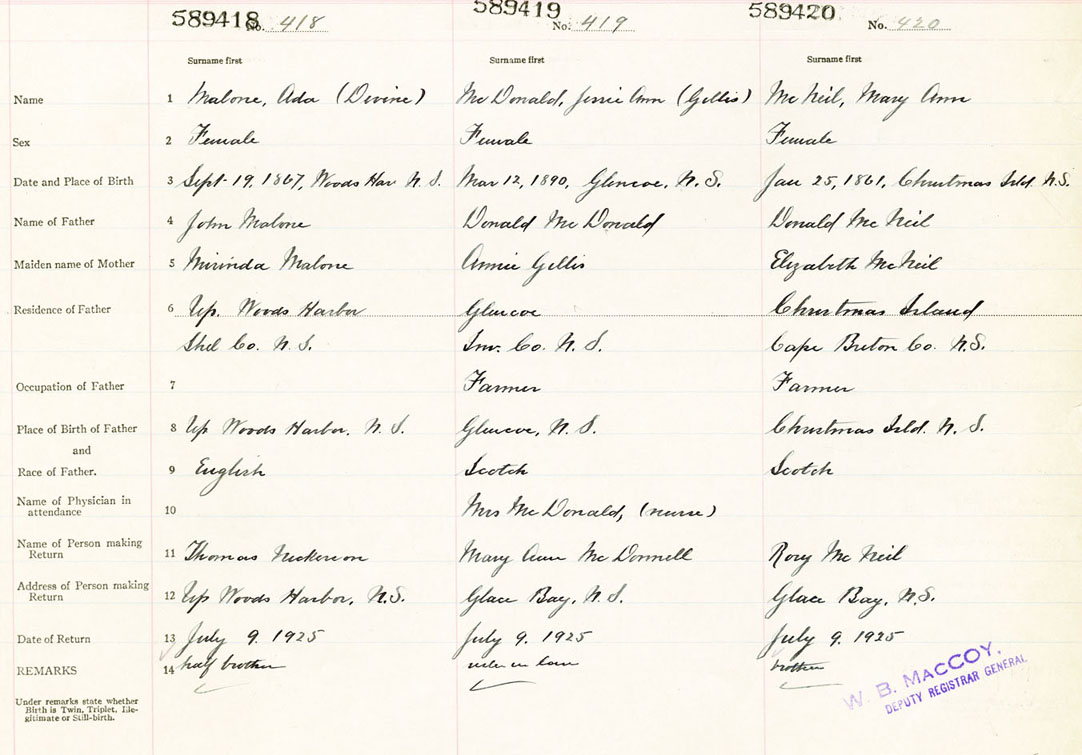 589418 No. 418 589419 No. 419 589420 No. 420
Surname first Surname first Surname first
Name 1 Malone, Ada (Divine) Mc Donald, Jessie Ann (Gillis) Mc Neil, Mary Ann
Sex 2 Female Female Female
Date and Place of Birth 3 Sept 19, 1867, Woods Har N. S. Mar 12, 1890, Glencoe, N. S. Jan 25, 1861, Christmas Isld. N.S.
Name of Father 4 John Malone Donald Mc Donald Donald Mc Neil
Maiden name of Mother 5 Mirinda Malone Annie Gillis Elizabeth McNeil
Residence of Father 6 Up. Woods Harbor Glencoe Christmas Island
Shel Co. N. S. Inv. Co. N. S. Cape Breton Co. N.S.
Occupation of Father 7 Farmer Farmer
Place of Birth of Father 8 Up Woods Harbor, N. S. Glencoe, N. S. Christmas Isld. N. S.
and
Race of Father. 9 English Scotch Scotch
Name of Physician in
attendance 10 Mrs McDonald, (nurse)
Name of Person making
Return 11 Thomas Nickerson Mary Ann Mc Donnell Rory Mc Neil
Address of Person making
Return 12 Up Woods Harbor, N.S. Glace Bay, N. S. Glace Bay, N.S.
Date of Return 13 July 9. 1925 July 9. 1925 July 9. 1925
REMARKS 14 half brother in law brother
Under remarks state whether
Birth is Twin, Triplet, Ille-
gitimate or Still-birth.
W. B. MACCOY,
DEPUTY REGISTRAR GENERAL